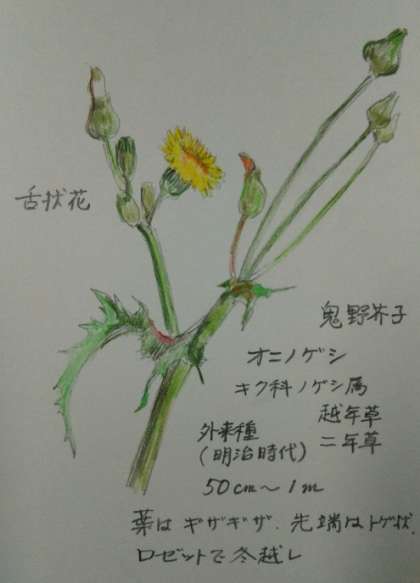 舌状花
鬼野芥子
オニノゲシ
キク科ノゲシ属
越年草
二年草
外来種
(明治時代)
50cm〜1m
葉はギザギザ、先端はトゲ状
ロゼットで冬越し